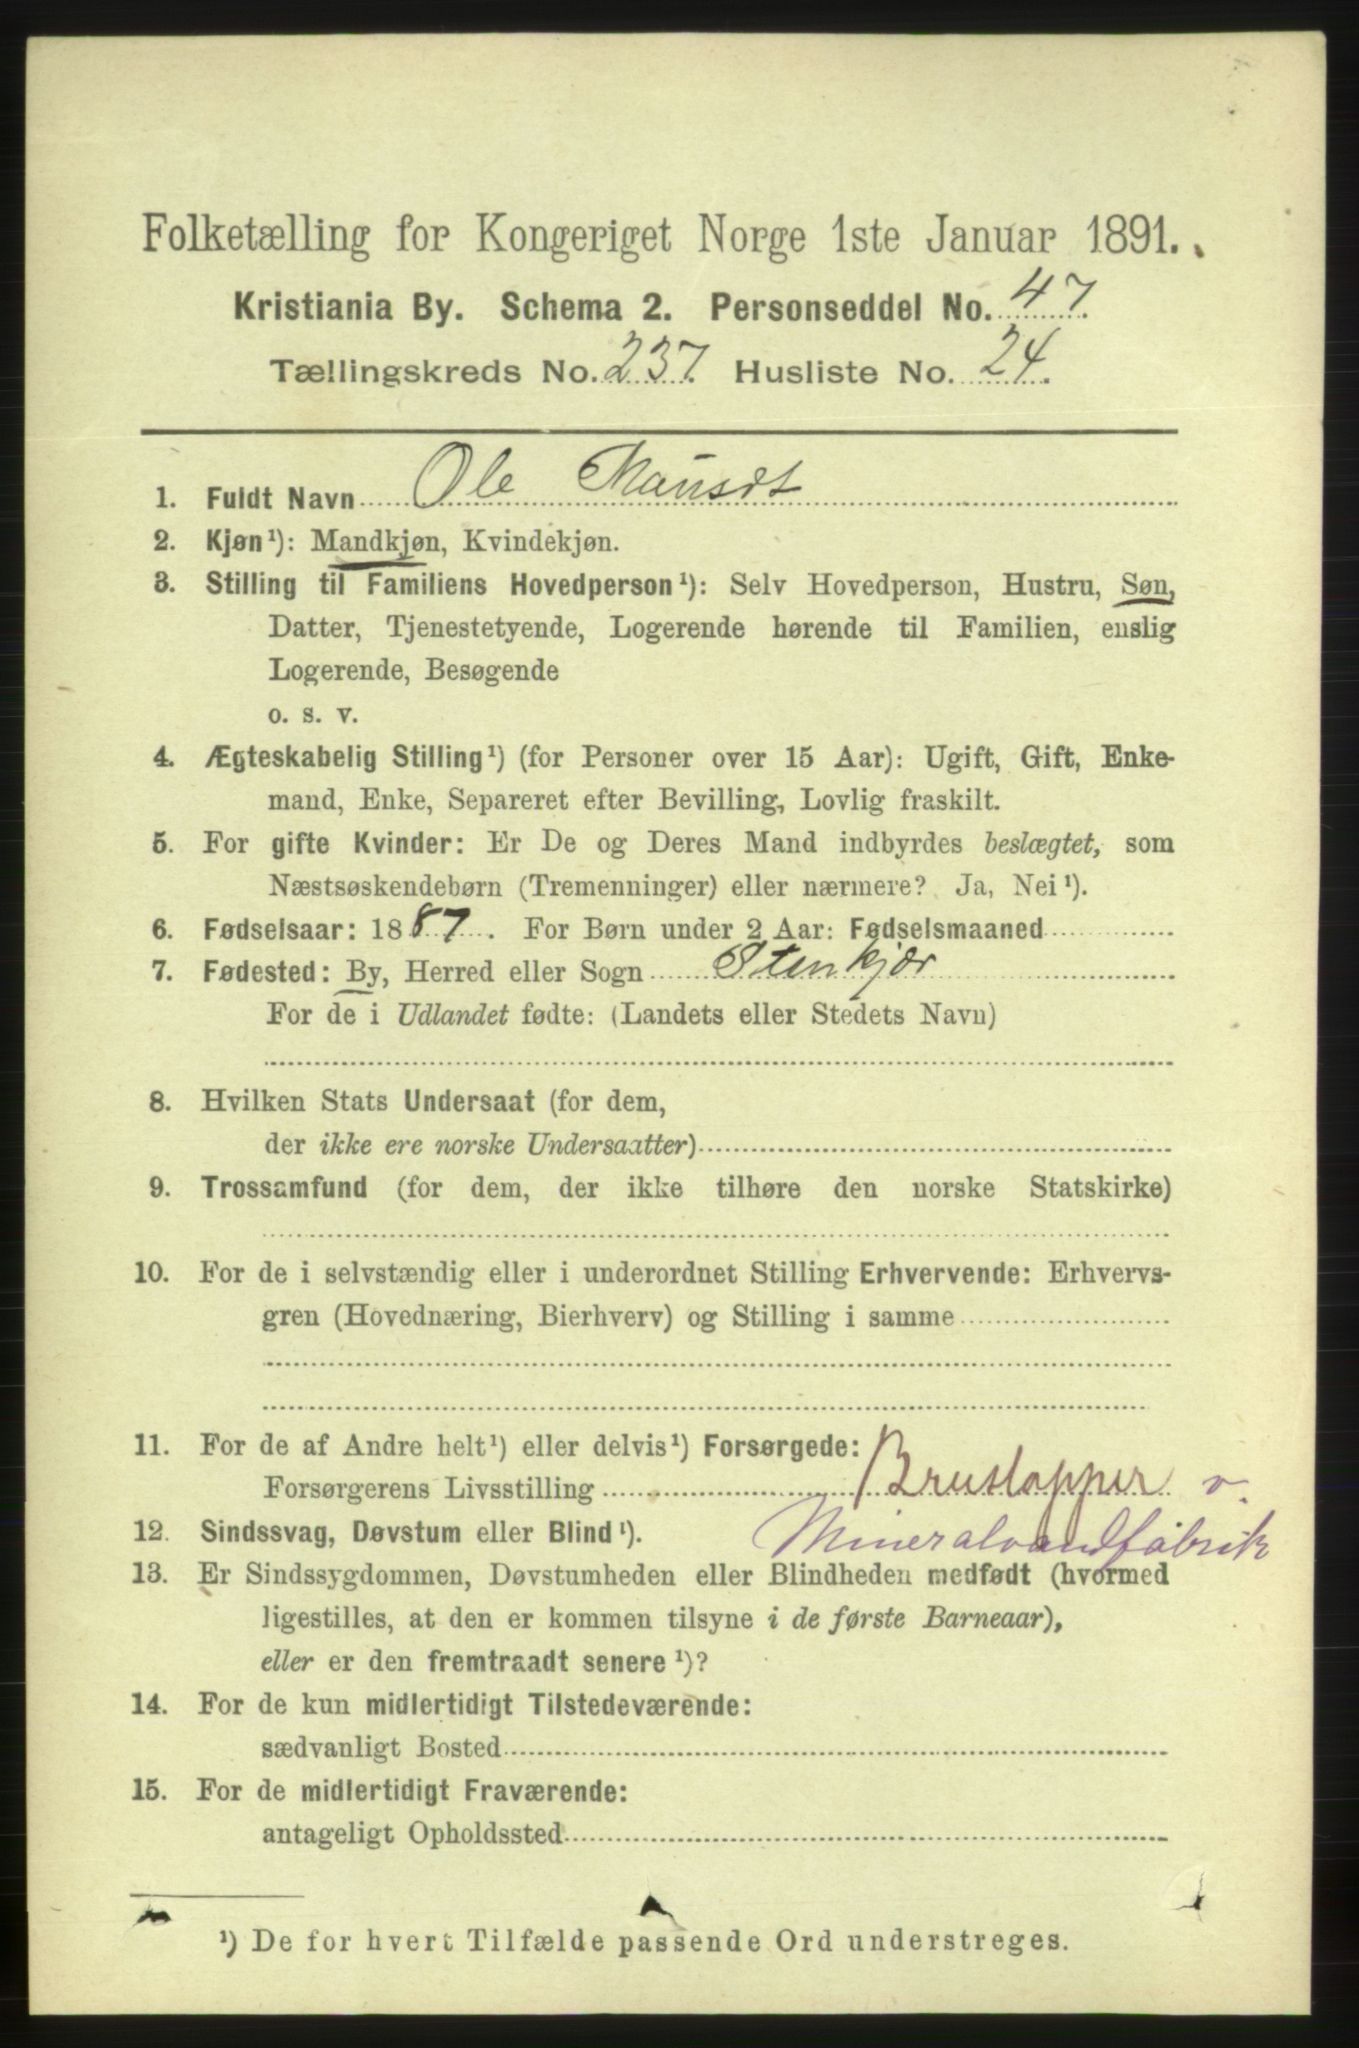 Folketælling for Kongeriget Norge 1ste Januar 1891.
Kristiania By. Schema 2. Personseddel No. 47.
Tællingskreds No. 237. Husliste No. 24.
1. Fuldt Navn Ole
2. Kjøn¹): Mandkjøn, Kvindekjøn.
3. Stilling til Familiens Hovedperson¹): Selv Hovedperson, Hustru, Søn,
Datter, Tjenestetyende, Logerende hørende til Familien, enslig
Logerende, Besøgende
o. s. v.
4. Ægteskabelig Stilling¹) (for Personer over 15 Aar): Ugift, Gift, Enke-
mand, Enke, Separeret efter Bevilling, Lovlig fraskilt.
5. For gifte Kvinder: Er De og Deres Mand indbyrdes beslægtet, som
Næstsøskendebørn (Tremenninger) eller nærmere? Ja, Nei¹).
6. Fødselsaar: 1887. For Børn under 2 Aar: Fødselsmaaned
7. Fødested: By, Herred eller Sogn Stenkjær
For de i Udlandet fødte: (Landets eller Stedets Navn)
8. Hvilken Stats Undersaat (for dem,
der ikke ere norske Undersaatter)
9. Trossamfund (for dem, der ikke tilhøre den norske Statskirke)
10. For de i selvstændig eller i underordnet Stilling Erhvervende: Erhvervs-
gren (Hovednæring, Bierhverv) og Stilling i samme
11. For de af Andre helt¹) eller delvis¹) Forsørgede:
Forsørgerens Livsstilling Brustapper v.
12. Sindssvag, Døvstum eller Blind¹). Mineralvandfabrik
13. Er Sindssygdommen, Døvstumheden eller Blindheden medfødt (hvormed
ligestilles, at den er kommen tilsyne i de første Barneaar),
eller er den fremtraadt senere¹)?
14. For de kun midlertidigt Tilstedeværende:
sædvanligt Bosted
15. For de midlertidigt Fraværende:
antageligt Opholdssted
¹) De for hvert Tilfælde passende Ord understreges.